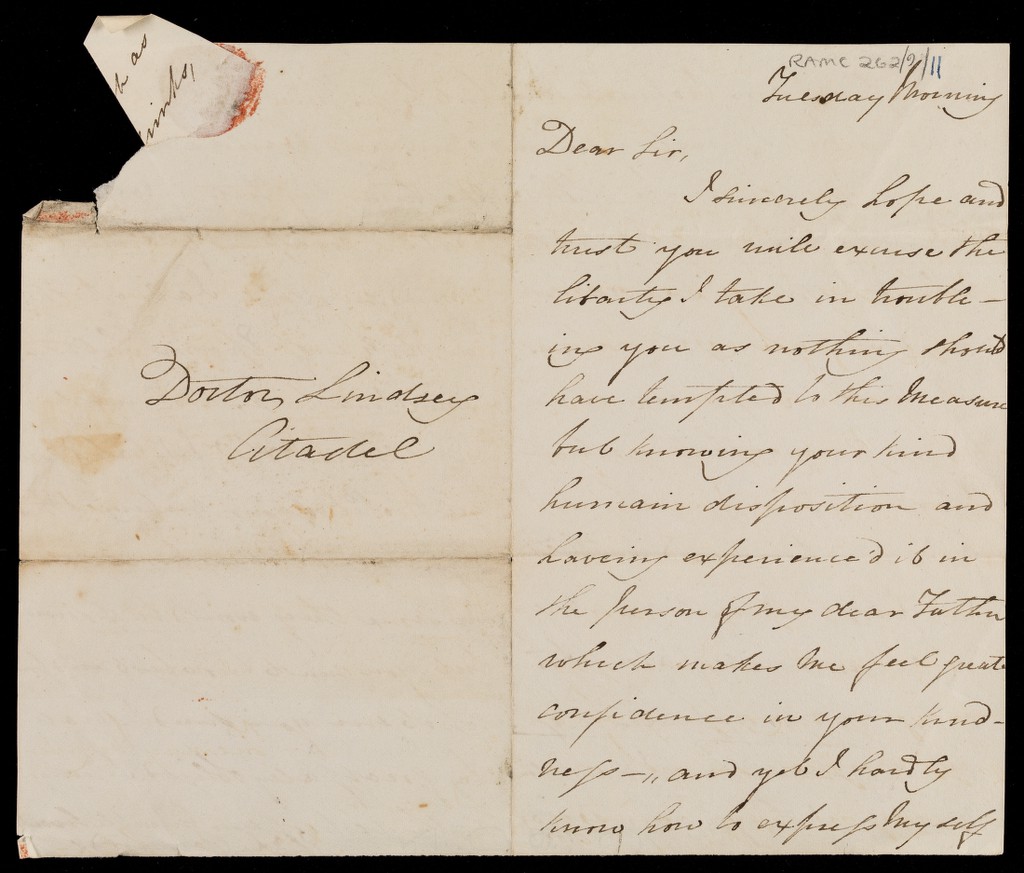 t as
hinks,
Doctor Lindsey
Citadel
RAMC 262/9/11
Tuesday Morning
Dear Sir,
I sincerely hope and
trust you will excuse the
libarty I take in trouble-
ing you as nothing should
have tempted to this measure
but knowing your kind
humain disposition and
haveing experience'd it in
the person of my dear Father
which makes me feel great
confidence in your kind-
ness-,, and yet I hardly
know how to express my self